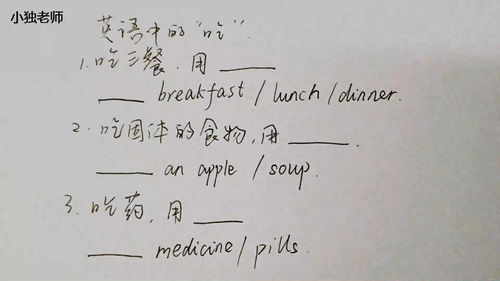 小独老师
英语中的"吃".
1. 吃三餐. 用 ______
______ breakfast / lunch / dinner.
2. 吃固体的食物, 用 ______.
______ an apple / soup.
3. 吃药, 用 ______
______ medicine / pills.